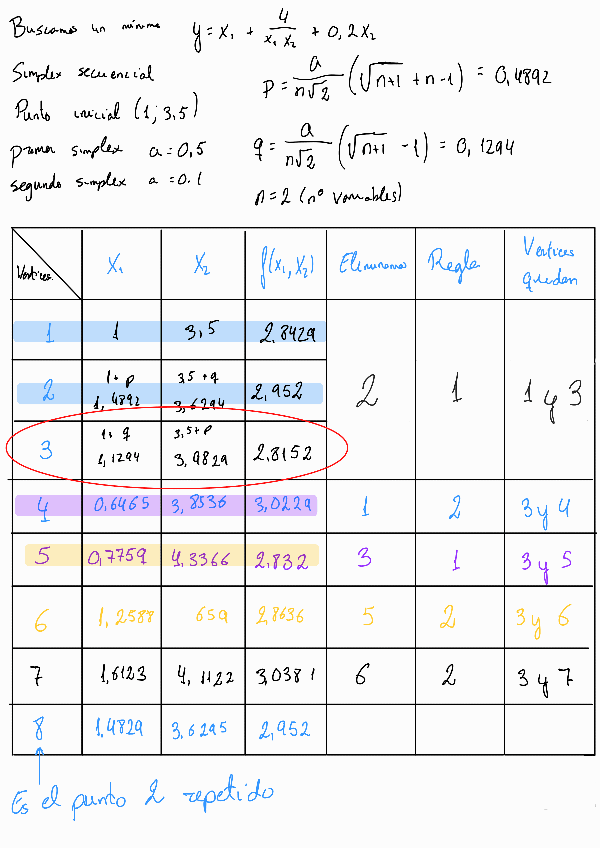 Buscamos un mínimo y = x₁ + 4/(x₁ x₂) + 0,2x₂
Simplex secuencial p = a/(n√2) (√(n+1) + n-1) = 0,4892
Punto inicial (1; 3,5)
primer simplex a = 0,5 q = a/(n√2) (√(n+1) - 1) = 0,1294
segundo simplex a = 0.1 n = 2 (nº variables)
Vértices X₁ X₂ f(x₁, x₂) Eliminamos Regla Vértices quedan
1 1 3,5 2,8429
2 1+p 1,4892 3,5+q 3,6294 2,952 2 1 1 y 3
3 1+q 1,1294 3,5+p 3,9829 2,8152
4 0,6465 3,8536 3,0229 1 2 3 y 4
5 0,7759 4,3366 2,832 3 1 3 y 5
6 1,2588 659 2,8636 5 2 3 y 6
7 1,6123 4,1122 3,0381 6 2 3 y 7
8 1,4829 3,6295 2,952
Es el punto 2 repetido